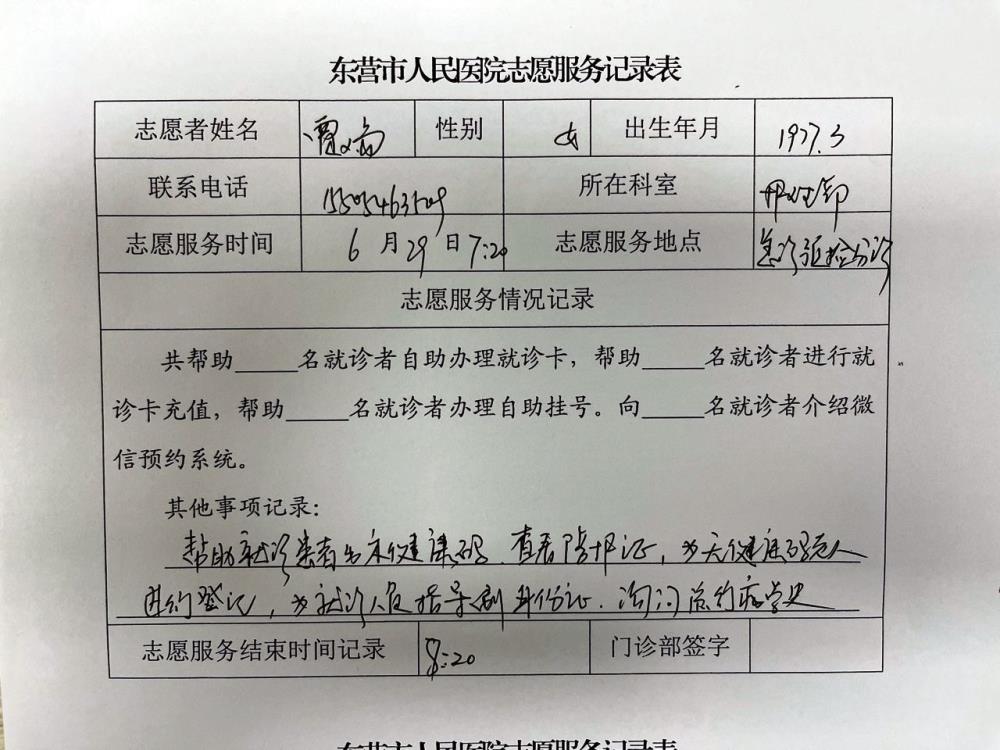 东营市人民医院志愿服务记录表
志愿者姓名 性别 女 出生年月 1977.3
联系电话 15505463509 所在科室
志愿服务时间 6月29日7:20 志愿服务地点 急诊预检分诊
志愿服务情况记录
共帮助_____名就诊者自助办理就诊卡，帮助_____名就诊者进行就
诊卡充值，帮助_____名就诊者办理自助挂号。向_____名就诊者介绍微
信预约系统。
其他事项记录：
帮助就诊患者出示健康码、查看陪护证，为无健康码人
进行登记，为就诊人员指导刷身份证、询问流行病学史
志愿服务结束时间记录 8:20 门诊部签字
东营市人民医院志愿服务记录表